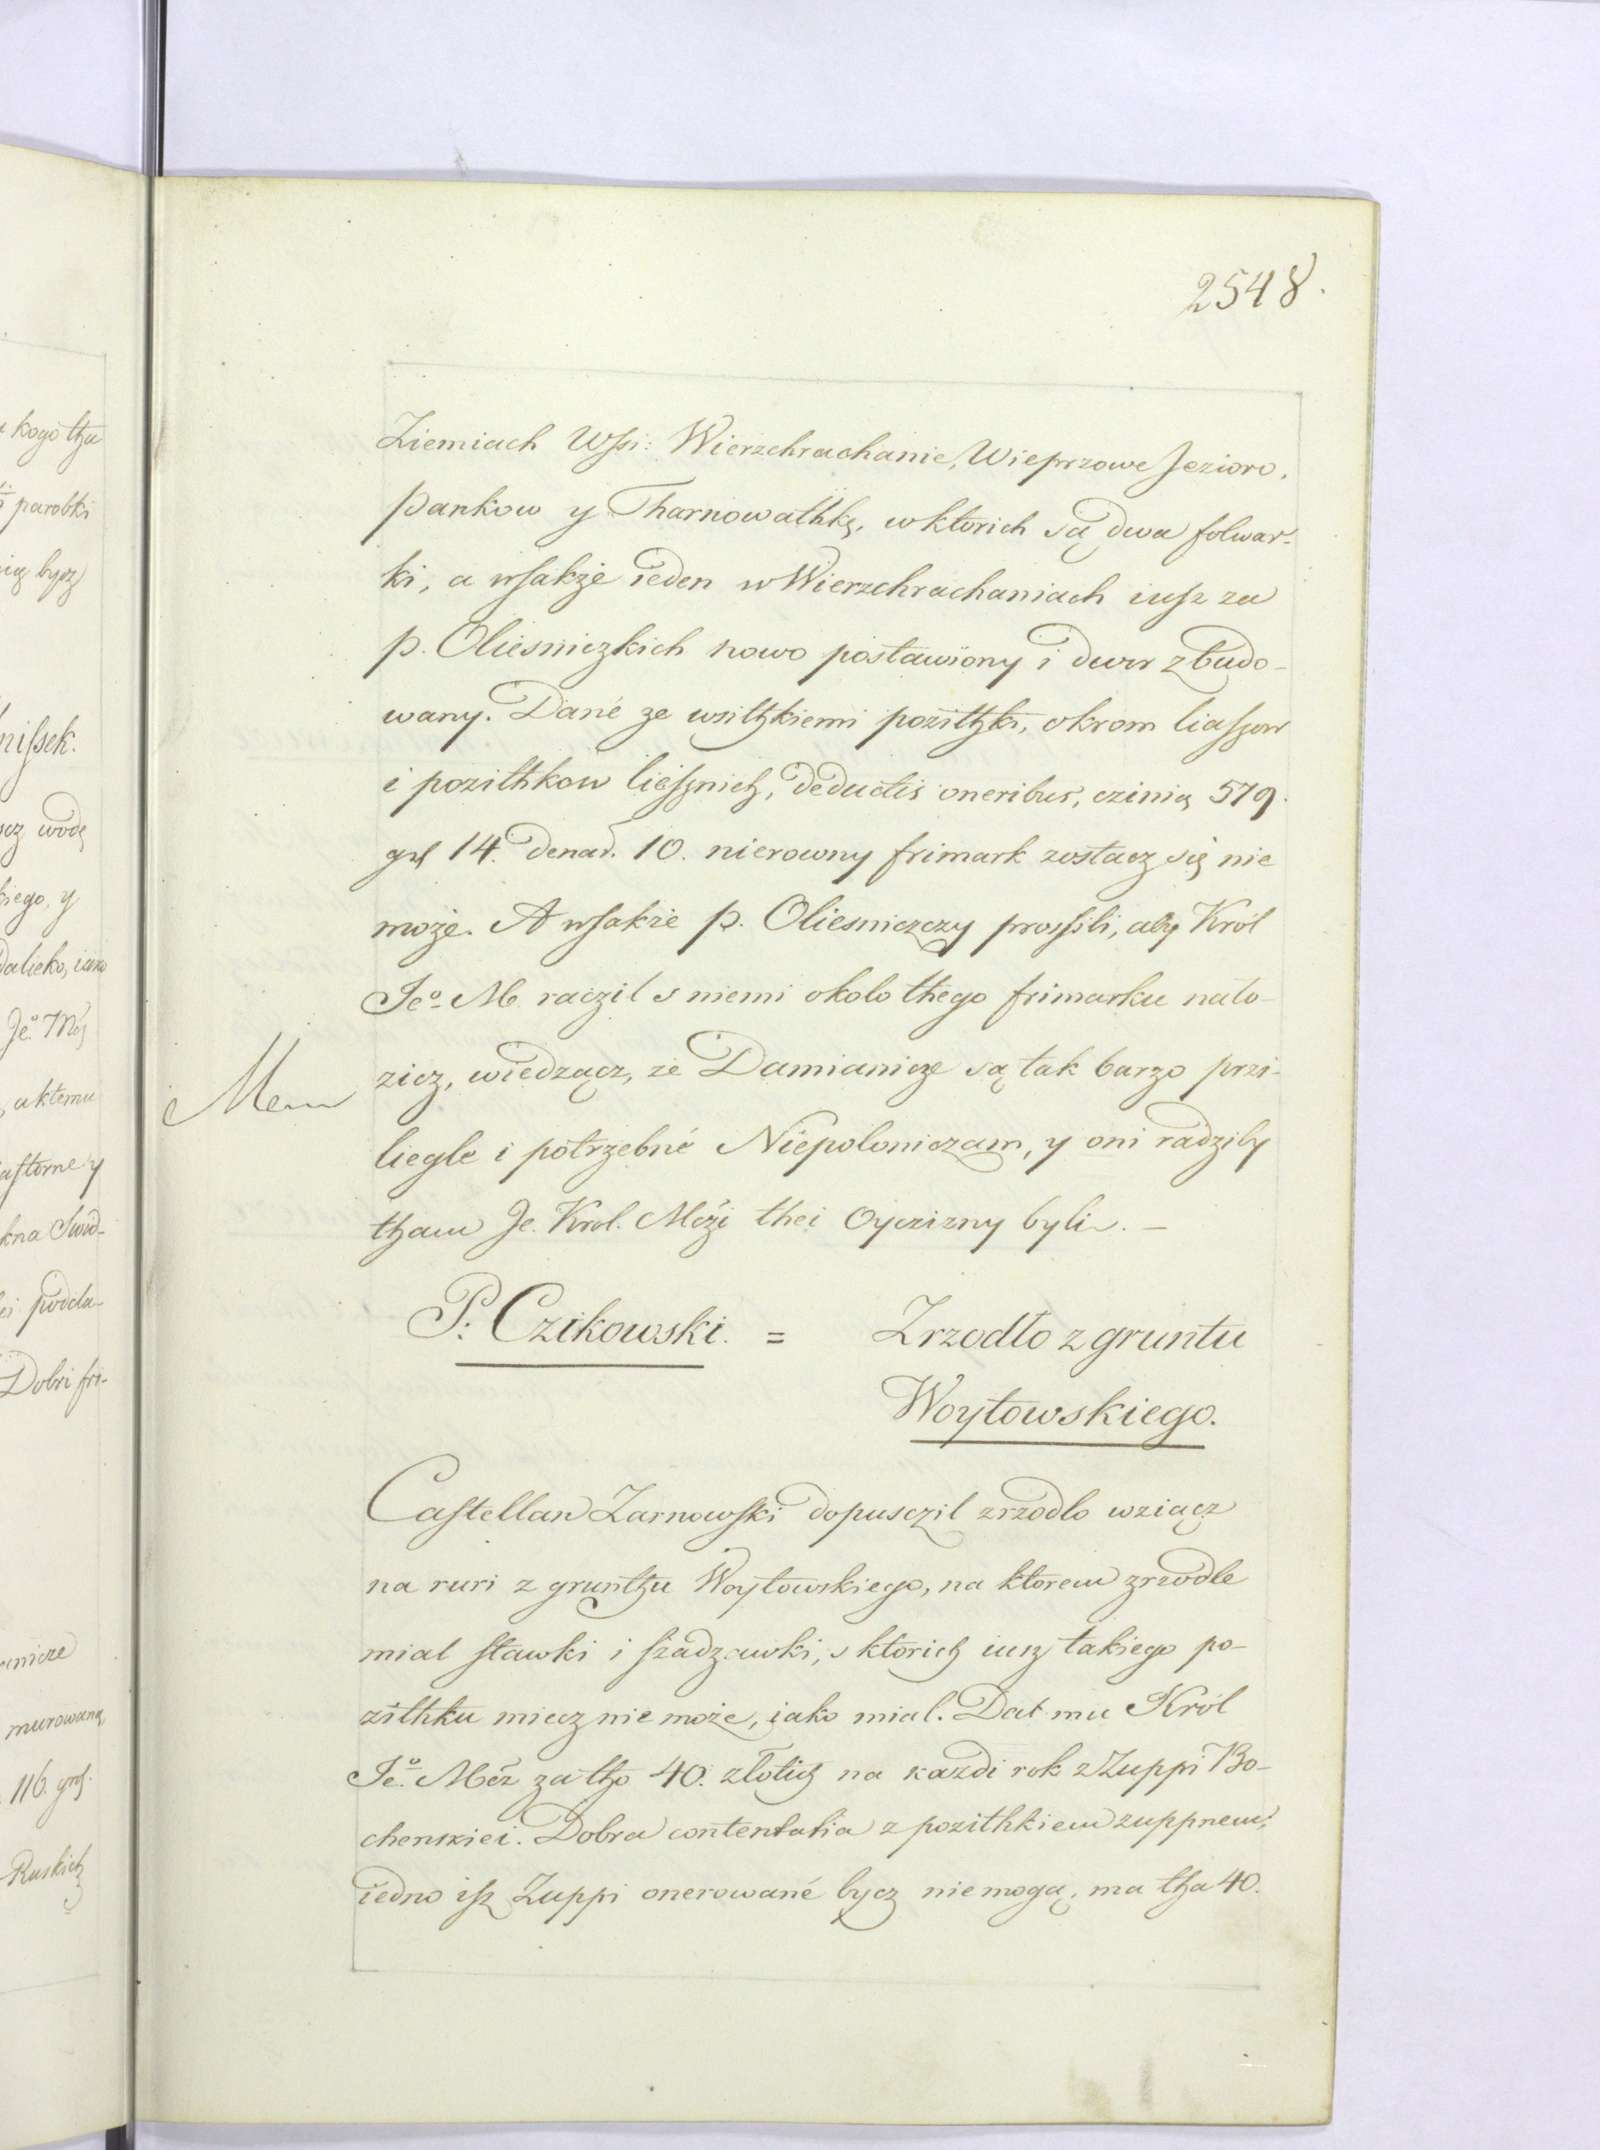 2548.
Ziemiach Wſsi: Wierzchrachanie, Wieprzowe Jezioro,
Pankow y Tharnowathkę, w ktorich są dwa folwar-
ki, a wſakże ieden w Wierzchrachaniach iuſz za
p. Oliesniczkich nowo postawiony i dwor zbudo-
wany. Dané ze wsitzkiemi pozitzki, okrom liaſzow
i pozithkow lieſznich, deductis oneribus, czinią 579.
grſ 14. denar. 10. nierowny frimark zostacz się nie
może. A wſakże p. Oliesniczczy prosſili, aby Król
Jeo. M. raczil s niemi okolo thego frimarku nało-
Mem
zicz, wiedzącz, ze Damianicze są tak barzo przi-
liegle i potrzebné Niepoloniczam, y oni radziby
tham Je. Krol. Mczi thei Oyczizny byli. —
P. Czikowski. = Zrzodło z gruntu
Woytowskiego.
Caſtellan Zarnowſki dopusczil zrzodlo wziącz
na ruri z grunthu Woytowskiego, na ktorem zrzodle
mial stawki i ſzadzawki, s ktorich iusz takiego po-
zithku miecz nie może, jako mial. Dal mu Król
Jeo. Mcz za tho 40. złotich na kazdi rok z Zuppi Bo-
chenskiei. Dobra contentatia z pozithkiem zuppnem,
iedno iſz Zuppi onerowané bycz niemogą, ma tha 40.
kogo tha
parobki
bycz
niſsek.
wodę
kiego, y
dalieko, iako
Jeo. Mczi
a ktemu
aſtorne y
podda-
Dobri fri-
murowana,
116. grſ.
Ruskich